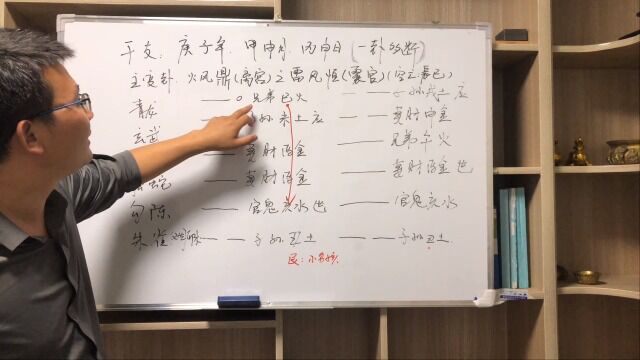 干支: 庚子年. 甲申月. 丙申日 (一卦多断)
主变卦. 火风鼎(离宫)之雷风恒(震宫)
青龙 —— o 兄弟巳火 子孙戌土应
玄武 子孙未土应 妻财申金
—— 妻财酉金 —— 兄弟午火
蛇 —— 妻财酉金 —— 妻财酉金世
勾陈 —— 官鬼亥水世 —— 官鬼亥水
朱雀 — — 子孙丑土 — — 子孙丑土
艮: 小男孩